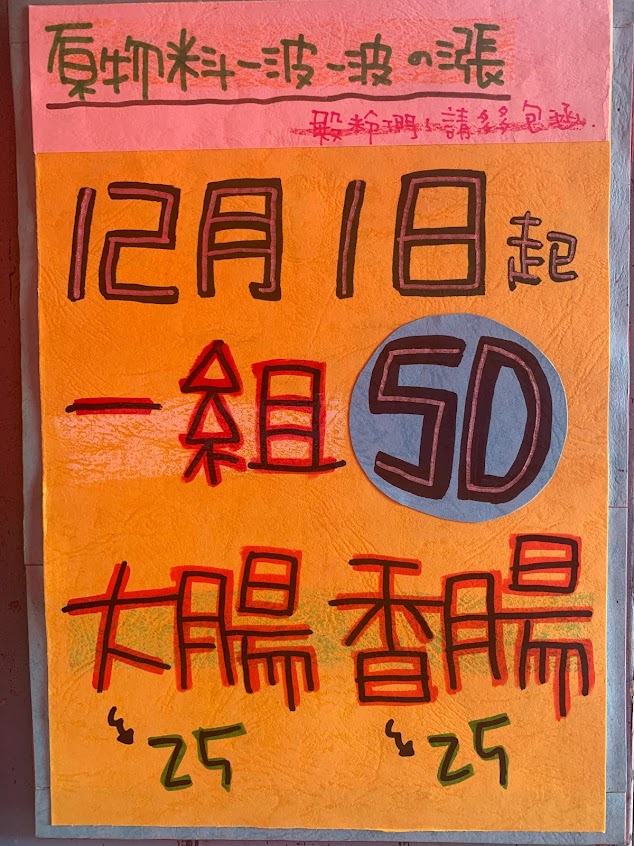 原物料一波一波の漲
請多多包涵.
12月1日起
一組 50
大腸 香腸
25 25